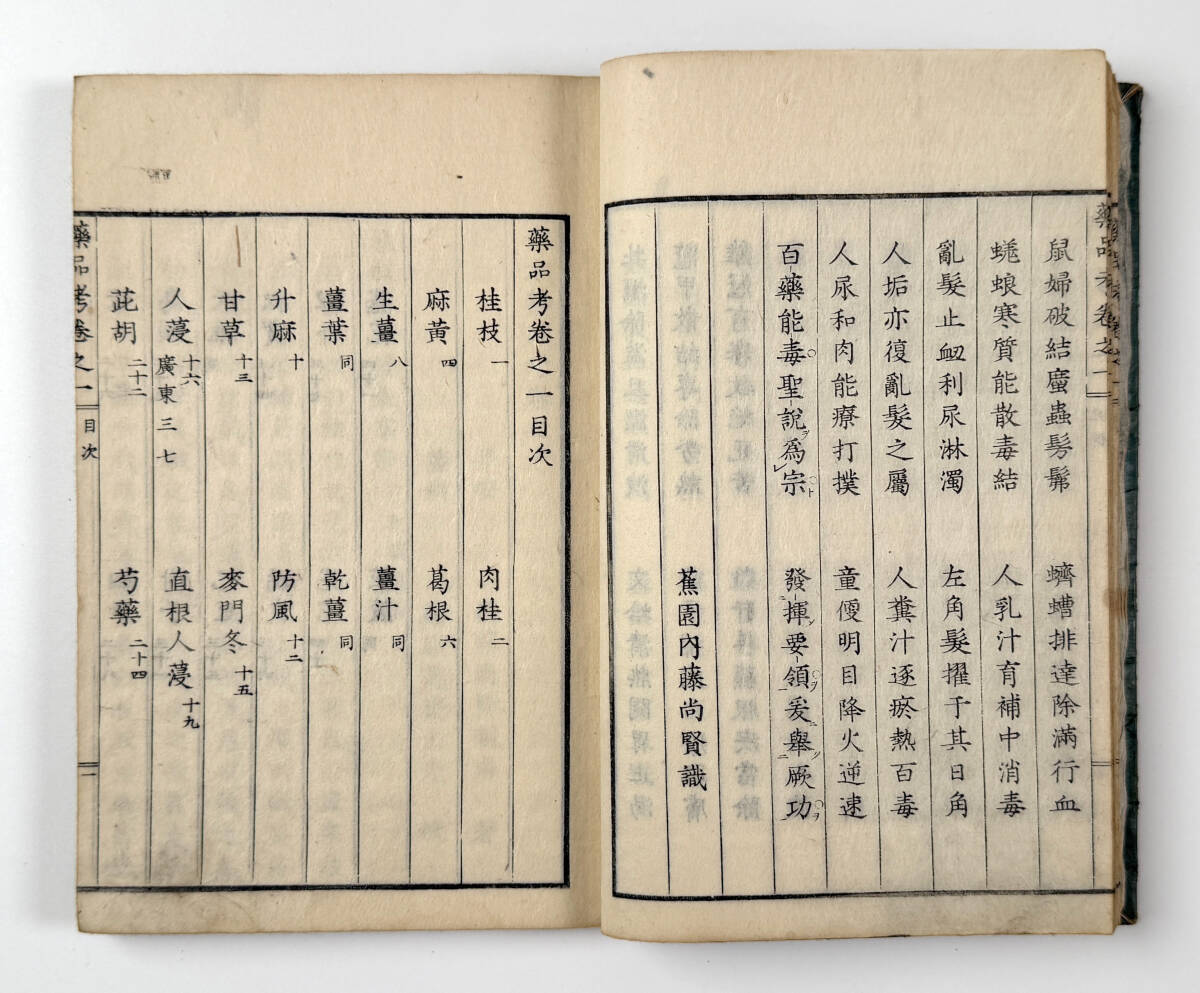 鼠婦破結䗪蟲髣髴 蠐螬排達除滿行血
蜣蜋寒質能散毒結 人乳汁育補中消毒
亂髮止衂利尿淋濁 左角髮擢于其日角
人垢亦復亂髮之屬 人糞汁逐瘀熱百毒
人尿和肉能療打撲 童便明目降火逆速
百藥能毒聖說爲宗 發揮要領爰舉厥功
蕉園內藤尚賢識
藥品考卷之一目次
桂枝 一 肉桂 二
麻黃 四 葛根 六
生薑 八 薑汁 同
薑葉 同 乾薑 同
升麻 十 防風 十二
甘草 十三 麥門冬 十五
人薓 十六 廣東 三七 直根人薓 十九
茈胡 二十二 芍藥 二十四
藥品考卷之一 目次 一